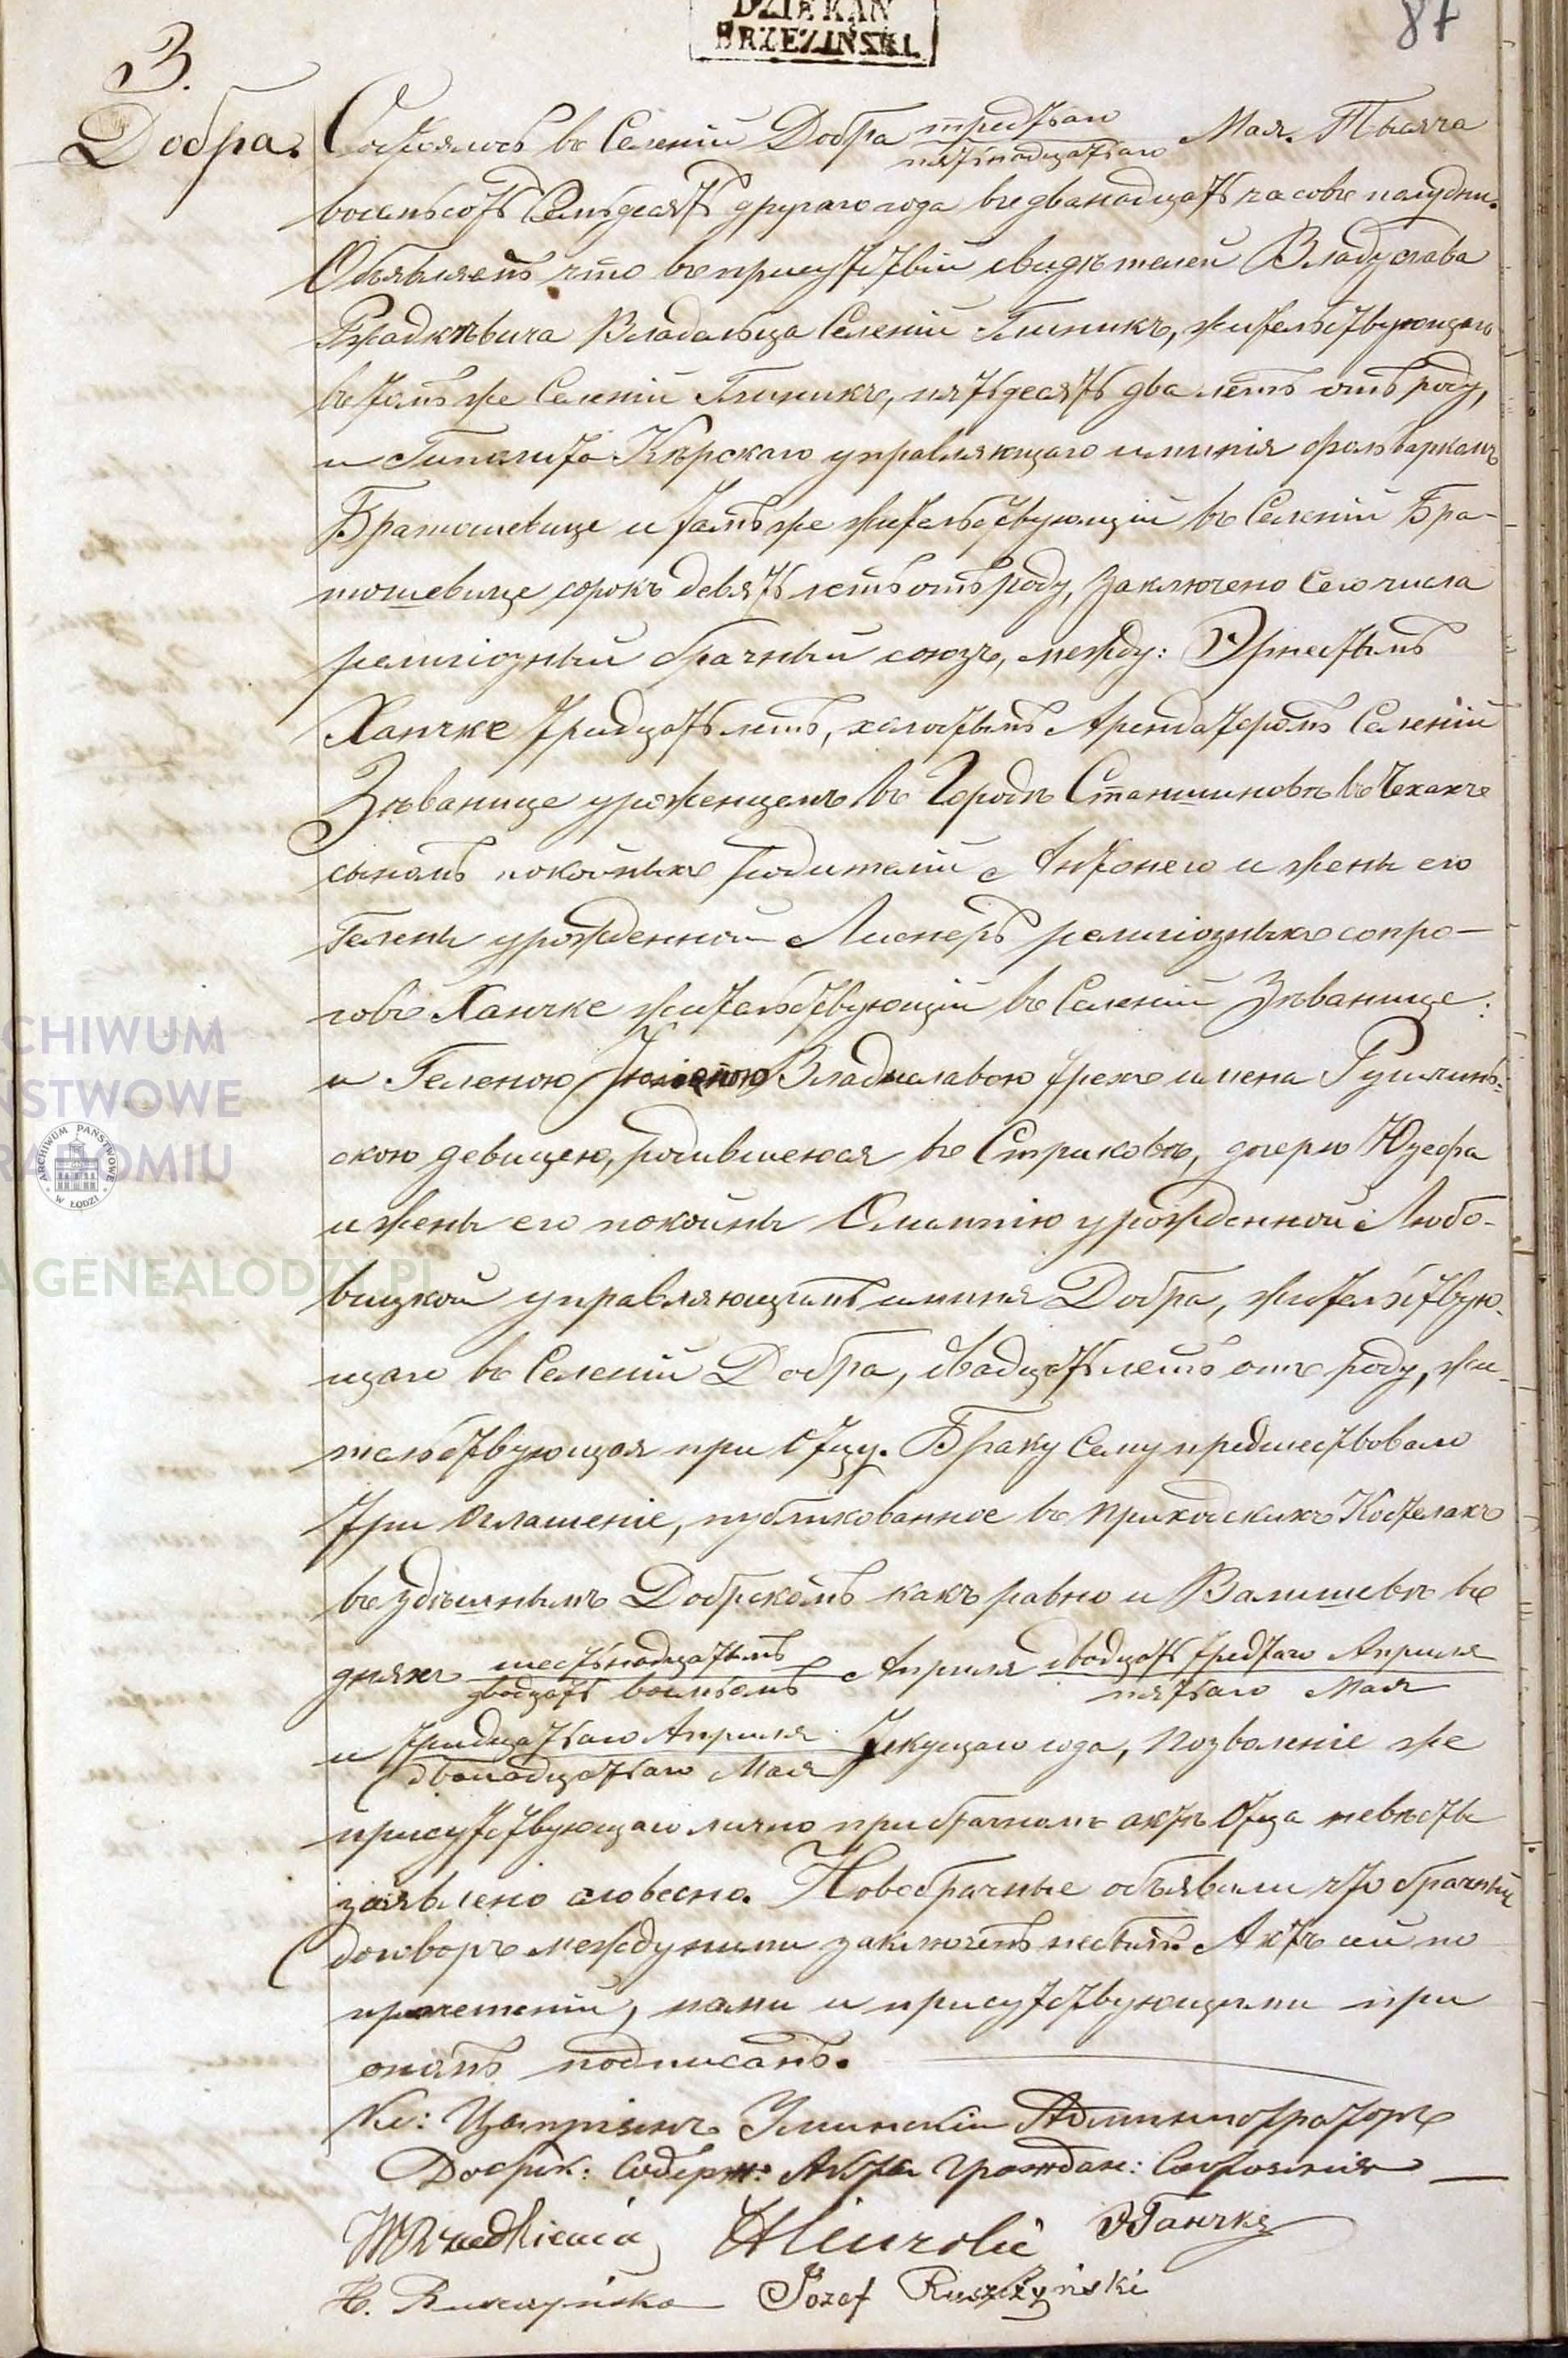 DZIEKAN
BRZEZIŃSKI
87
3.
Добра.
Состоялось въ Селеніи Добра третьяго / пятьнадцатаго Мая Тысяча
восемьсотъ Семьдесятъ другаго года въ двѣнадцать часовъ полудни.
Объявляемъ что въ присутствіи свидѣтелей Владислава
Ржадкѣвича Владѣльца Селеніи Глиникъ, жительствующаго
въ томъ же Селеніи Глиникъ, пятьдесятъ два летъ отъ роду,
и Гиполита Кѣрскаго управляющаго имѣнія фольваркомъ
Братошевице и тамъ же жительствующій въ Селеніи Бра-
тошевице сорокъ девять летъ отъ роду, заключено Сего числа
религіозный брачный союзъ, между: Эрнестымъ
Ханчке тридцать летъ, холостымъ Арендаторомъ Селеніи
Зѣванице уроженцемъ въ Городѣ въ Чехахъ
сыномъ покойныхъ родителей Антонего и жены его
Гелены урожденной религіозныхъ сопро-
говъ Ханчке жительствующій въ Селеніи Зѣванице:
и Геленою Владиславою трехъ имена Рущинь-
скою девицею, родившеюся въ Стриковѣ, дочерю Юзефа
и жены его покойны урожденной Любо-
вицкой управляющимъ имѣнія Добра, жительствую-
щаго въ Селеніи Добра, двадцать летъ отъ роду, жи-
тельствующая при отцу. Браку Сему предшествовало
три оглашеніе, публикованное въ приходскихъ Костелахъ
въ здѣшнымъ Добрскомъ какъ равно и въ
дняхъ шестьнадцатымъ / двадцать восьмомъ Апреля двадцать третьяго Апреля / пятаго Мая
и тридцатаго Апреля / двѣнадцатаго Мая текущаго года, позволеніе же
присутствующаго лично при брачномъ актѣ Отца невѣсты
заявлено словесно. Новобрачные объявили что брачный
договоръ между ними заключенъ небылъ. Актъ сей по
прочтеніи, нами и присутствующими при
ономъ подписанъ.
Кс: Администраторъ
Добрск: Содерж: Акта Граждан: Состоянія
WRzadkiewicz HKierski ЭГанчке
H. Ruszczyńska Józef Ruszczyński
ARCHIWUM PAŃSTWOWE W ŁODZI
GENEALODZY.PL